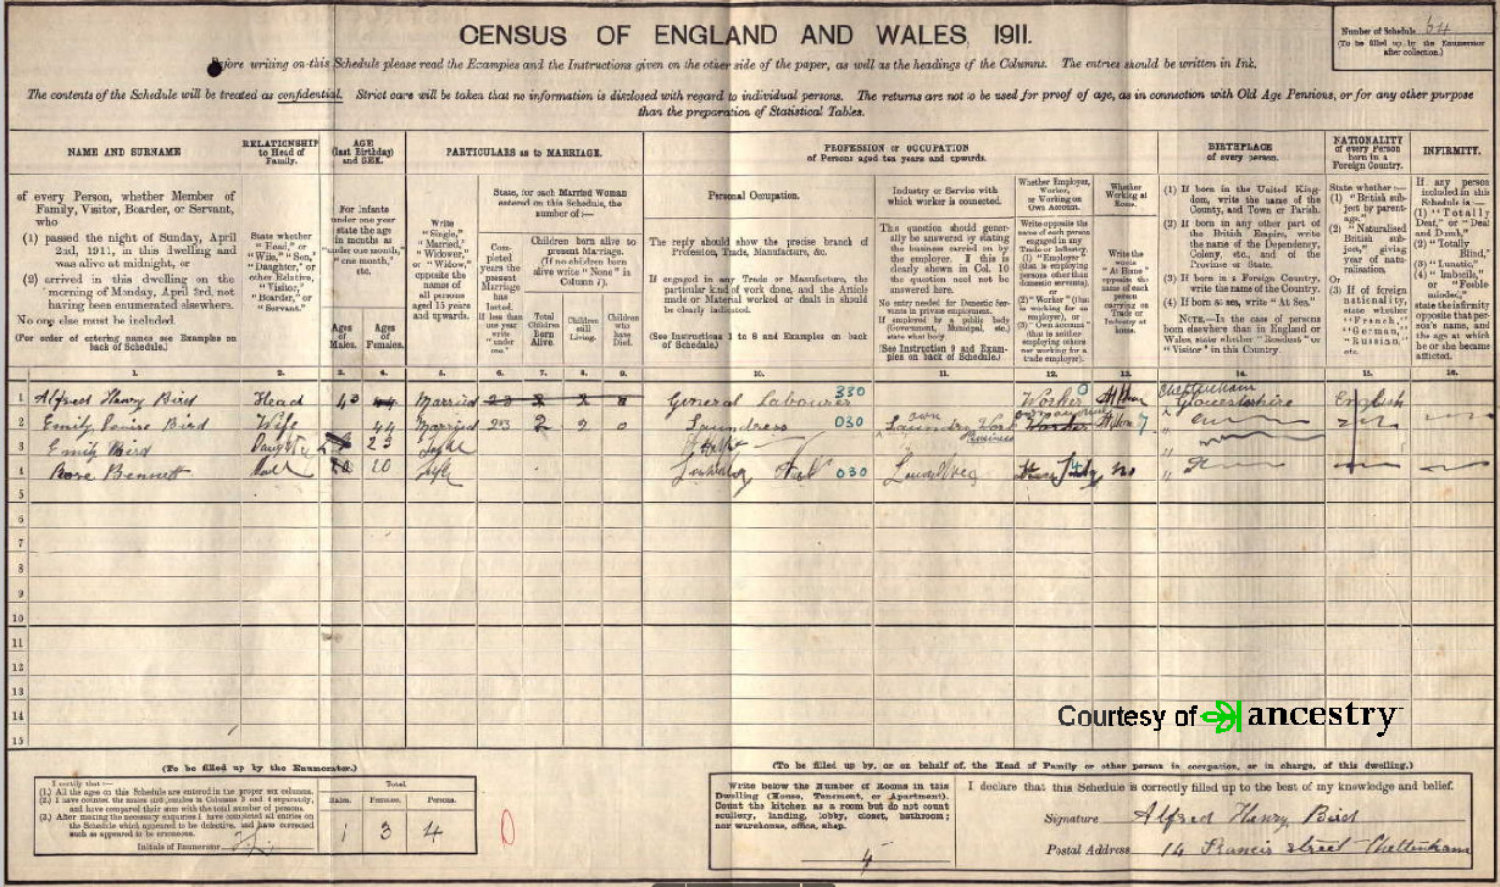 CENSUS OF ENGLAND AND WALES, 1911.
Number of Schedule 64
(To be filled up by the Enumerator
after collection.)
Before writing on this Schedule please read the Examples and the Instructions given on the other side of the paper, as well as the headings of the Columns. The entries should be written in Ink.
The contents of the Schedule will be treated as confidential. Strict care will be taken that no information is disclosed with regard to individual persons. The returns are not to be used for proof of age, as in connection with Old Age Pensions, or for any other purpose
than the preparation of Statistical Tables.
NAME AND SURNAME
of every Person, whether Member of
Family, Visitor, Boarder, or Servant,
who
(1) passed the night of Sunday, April
2nd, 1911, in this dwelling and
was alive at midnight, or
(2) arrived in this dwelling on the
morning of Monday, April 3rd, not
having been enumerated elsewhere.
No one else must be included.
(For order of entering names see Examples on
back of Schedule.)
RELATIONSHIP
to Head of
Family.
State whether
"Head," or
"Wife," "Son,"
"Daughter," or
other Relative,
"Visitor,"
"Boarder," or
"Servant."
AGE
(last Birthday)
and SEX.
For Infants
under one year
state the age
in months as
"under one month,"
"one month,"
etc.
Ages
of
Males.
Ages
of
Females.
PARTICULARS as to MARRIAGE.
Write
"Single,"
"Married,"
"Widower,"
or "Widow,"
opposite the
names of
all persons
aged 15 years
and upwards.
State, for each Married Woman
entered on this Schedule, the
number of:—
Completed
years the
present
Marriage
has
lasted.
If less than
one year
write
"under
one."
Children born alive to
present Marriage.
(If no children born
alive write "None" in
Column 7).
Total
Children
Born
Alive.
Children
still
Living.
Children
who
have
Died.
PROFESSION or OCCUPATION
of Persons aged ten years and upwards.
Personal Occupation.
The reply should show the precise branch of
Profession, Trade, Manufacture, &c.
If engaged in any Trade or Manufacture, the
particular kind of work done, and the Article
made or Material worked or dealt in should
be clearly indicated.
(See Instructions 1 to 8 and Examples on back
of Schedule.)
Industry or Service with
which worker is connected.
This question should generally
be answered by stating
the business carried on by
the employer. If this is
clearly shown in Col. 10
the question need not be
answered here.
No entry needed for Domestic Servants
in private employment.
If employed by a public body
(Government, Municipal, etc.)
state what body.
(See Instruction 9 and Examples
on back of Schedule.)
Whether Employer,
Worker,
or Working on
Own Account.
Write opposite the
name of each person
engaged in any
Trade or Industry,
(1) "Employer"
(that is employing
persons other than
domestic servants),
or
(2) "Worker" (that
is working for an
employer), or
(3) "Own account"
(that is neither
employing others
nor working for a
trade employer).
Whether
Working at
Home.
Write the
words
"At Home"
opposite the
name of each
person
carrying on
Trade or
Industry at
home.
BIRTHPLACE
of every person.
(1) If born in the United Kingdom,
write the name of the
County, and Town or Parish.
(2) If born in any other part of
the British Empire, write
the name of the Dependency,
Colony, etc., and of the
Province or State.
(3) If born in a Foreign Country,
write the name of the Country.
(4) If born at sea, write "At Sea."
NOTE.—In the case of persons
born elsewhere than in England or
Wales, state whether "Resident" or
"Visitor" in this Country.
NATIONALITY
of every Person
born in a
Foreign Country.
State whether:—
(1) "British subject
by parentage,"
(2) "Naturalised
British subject,"
giving
year of naturalisation,
Or
(3) If of foreign
nationality,
state whether
"French,"
"German,"
"Russian,"
etc.
INFIRMITY.
If any person
included in this
Schedule is:—
(1) "Totally
Deaf," or "Deaf
and Dumb,"
(2) "Totally
Blind,"
(3) "Lunatic,"
(4) "Imbecile,"
or "Feeble-
minded,"
state the infirmity
opposite that person's
name, and
the age at which
he or she became
afflicted.
1. 2. 3. 4. 5. 6. 7. 8. 9. 10. 11. 12. 13. 14. 15. 16.
1 Alfred Henry Bird Head 43 44 Married 23 2 2 0 General Labourer 330 Worker 0 Cheltenham Gloucestershire English
2 Emily Louise Bird Wife 44 Married 23 2 2 0 Laundress 030 own Laundry Work Business Worker At Home 7
3 Emily Bird Daughter 23
4 Rose Bennett 20 20 030 no
5
6
7
8
9
10
11
12
13
14
15
Courtesy of ancestry
(To be filled up by the Enumerator.)
I certify that:—
(1.) All the ages on this Schedule are entered in the proper sex columns.
(2.) I have counted the males and females in Columns 3 and 4 separately,
and have compared their sum with the total number of persons.
(3.) After making the necessary enquiries I have completed all entries on
the Schedule which appeared to be defective, and have corrected
such as appeared to be erroneous.
Initials of Enumerator
Total.
Males. Females. Persons.
1 3 4
(To be filled up by, or on behalf of, the Head of Family or other person in occupation, or in charge, of this dwelling.)
Write below the Number of Rooms in this
Dwelling (House, Tenement, or Apartment).
Count the kitchen as a room but do not count
scullery, landing, lobby, closet, bathroom;
nor warehouse, office, shop.
I declare that this Schedule is correctly filled up to the best of my knowledge and belief.
Signature Alfred Henry Bird
Postal Address 14 Francis street Cheltenham